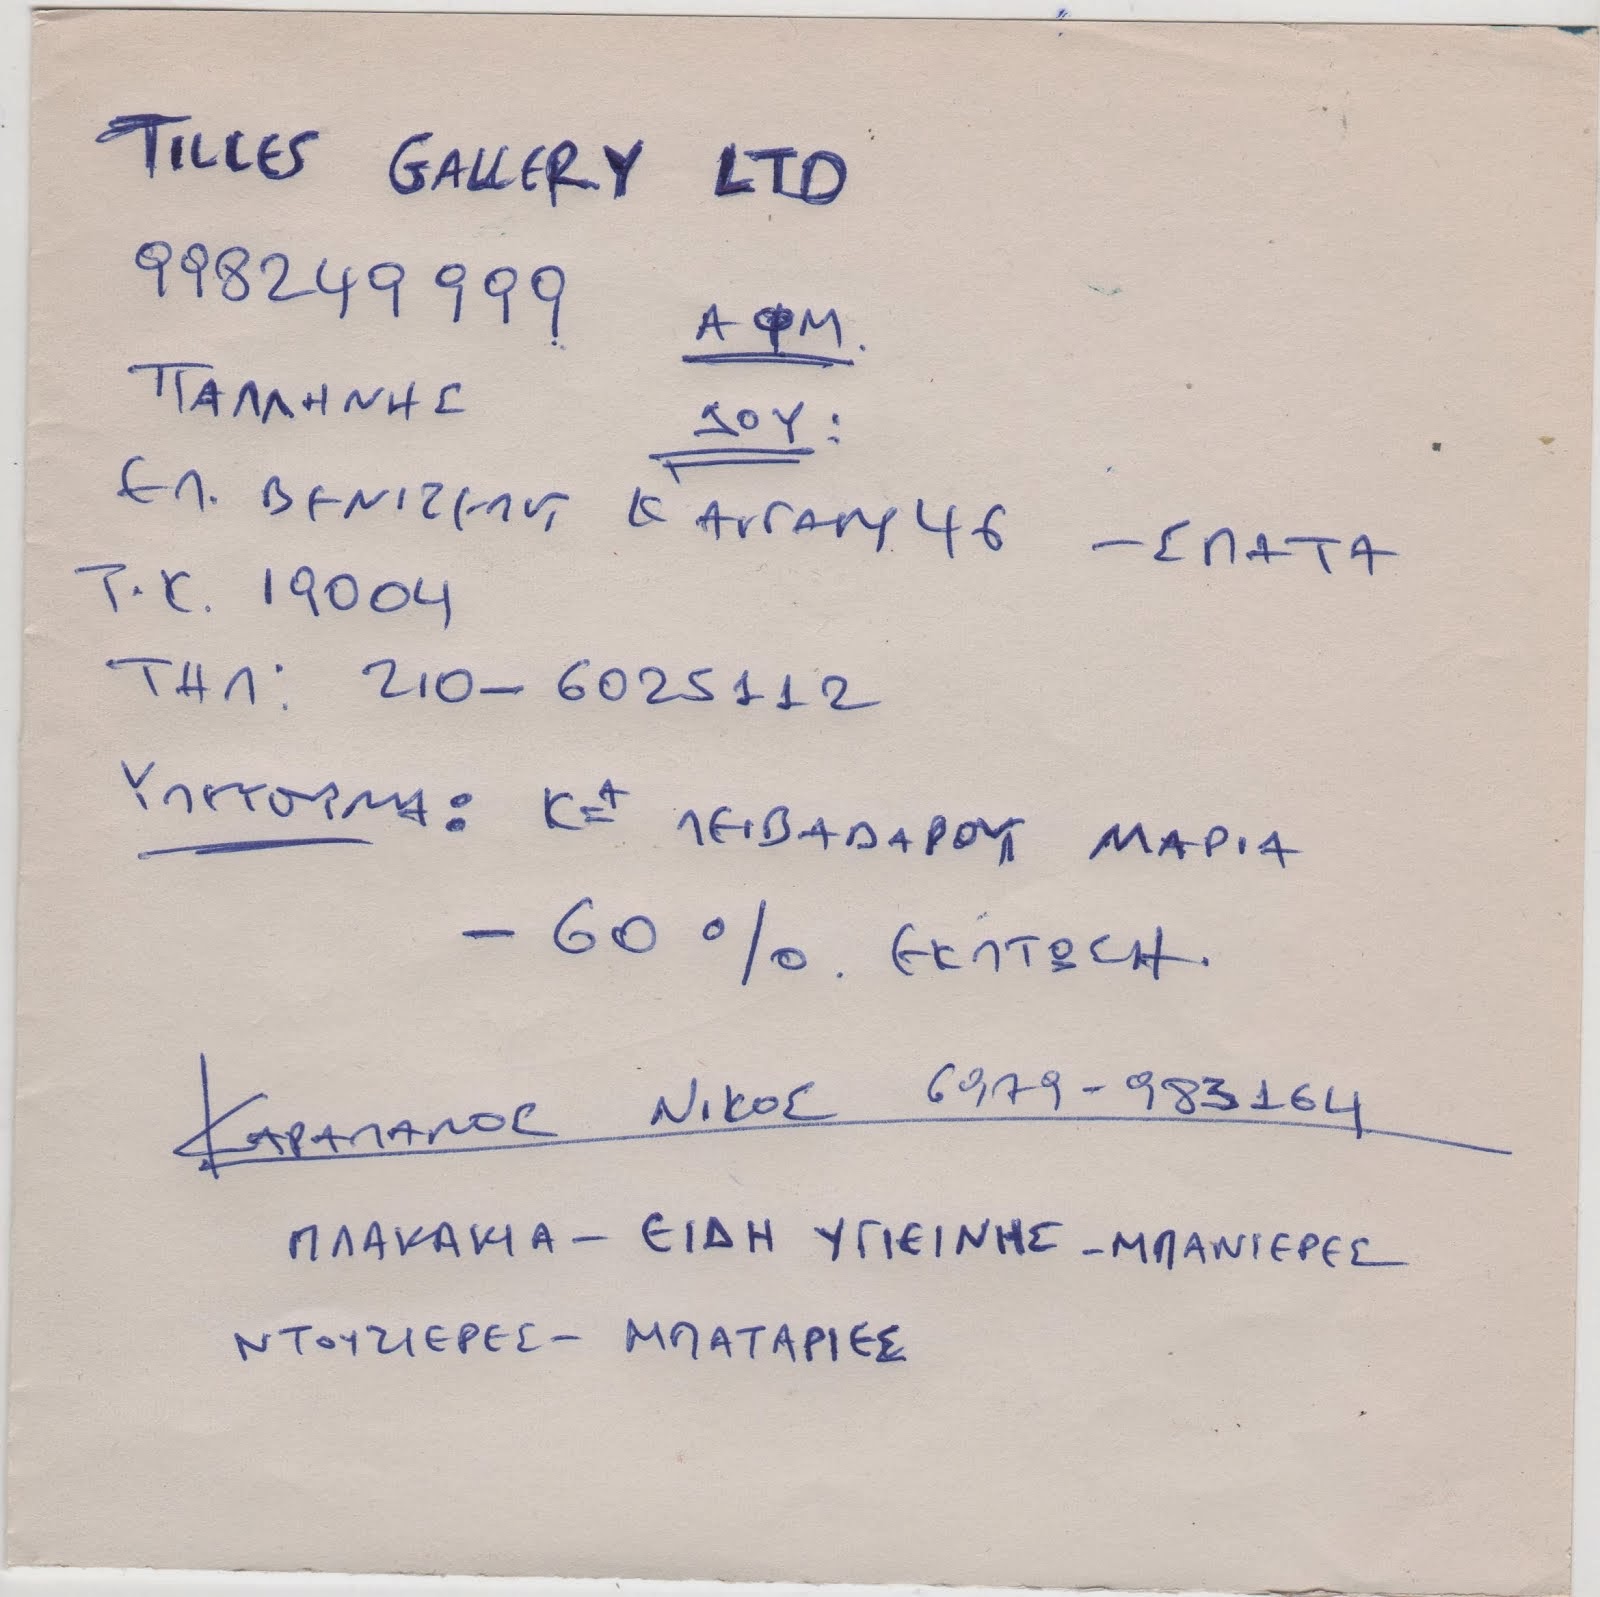 TILLES GALLERY LTD
998249999 ΑΦΜ.
ΠΑΛΛΗΝΗΣ ΔΟΥ:
ΕΛ. ΒΕΝΙΖΕΛΟΥ Κ 46 - ΣΠΑΤΑ
Τ.Κ. 19004
ΤΗΛ: 210-6025112
Κα ΛΕΙΒΑΔΑΡΟΥ ΜΑΡΙΑ
- 60 %. ΕΚΠΤΩΣΗ.
ΚΑΡΑΠΑΝΟΣ ΝΙΚΟΣ 6979-983164
ΠΛΑΚΑΚΙΑ - ΕΙΔΗ ΥΓΙΕΙΝΗΣ - ΜΠΑΝΙΕΡΕΣ
ΝΤΟΥΖΙΕΡΕΣ - ΜΠΑΤΑΡΙΕΣ